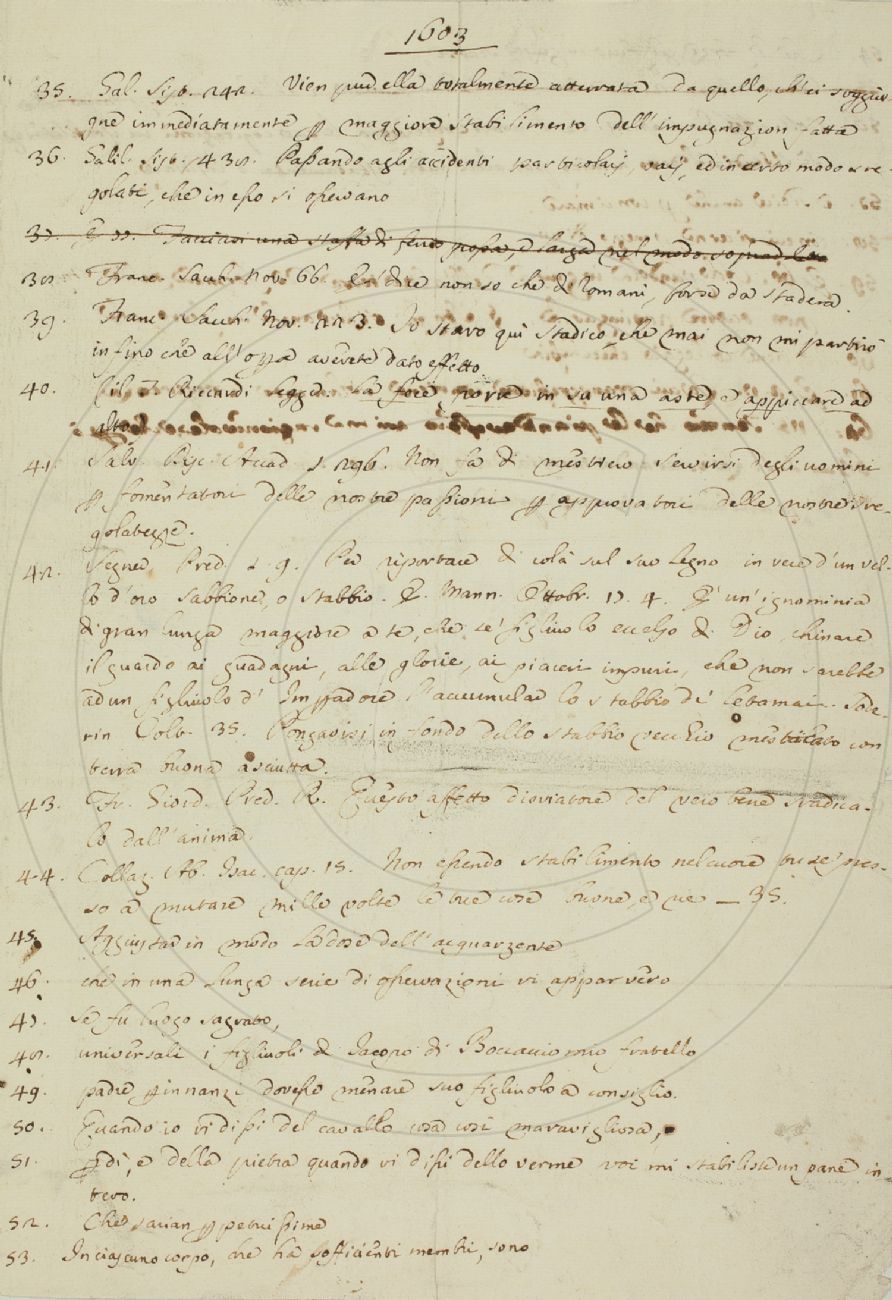 1603
35. Gal. Sist. 242. Vien pur ella totalmente atterrata da quello, ch'ei soggiu-
gne immediatamente p maggiore stabilimento dell'impugnazion fatta
36. Galil. Sist. 438. Passando agli accidenti particolarj, varj, ed in certo modo sre-
golati, che in esso si osservano
37. Facciasi una staffa di ferro grossa, e larga nel modo sopradetto
38. Franc. Sacch. Nov. 66. E' dice non so che di Romani, forse da stadera.
39. Franc. Sacch. Nov. 223. Io starò qui stadico, che mai non mi partirò
infino che all'opra averete dato effetto
40. Riccardi legge. La fece porre in su una aste, e appiccare ad
alto
41. Salv. Disc. Accad. 1. 296. Non fa di mestiero servirsi degli uomini
p fomentatori delle nostre passioni p approvatori delle nostre sre-
golatezze.
42. Segner. Pred. 2. 9. Per riportare di colà sul suo legno in vece d'un vel-
lo d'oro sabbione, o stabbio. E. Mann. Ottobr. 17. 4. E' un'ignominia
di gran lunga maggiore a te, che se' figliuolo eccelso di Dio, chinare
il guardo ai guadagni, alle glorie, ai piaceri impuri, che non sarebbe
ad un figliuolo d'Impadore l'accumular lo stabbio de' letamai. Sode-
rin Colt. 35. Pongavisi in fondo dello stabbio vecchio mesticato con
terra buona asciutta.
43. Fr. Giord. Pred. R. Questo affetto disviatore del vero bene stradica-
lo dall'anima.
44. Collaz. Ab. Isac. cap. 15. Non essendo stabilimento nel cuore tu se' pres-
so a mutare mille volte le tue cose buone, e rie — 35.
45. Aggiustar in modo la dose dell'acquarzente
46. che in una lunga serie di osservazioni vi apparvero
47. se fu luogo sagrato,
48. universali i figliuoli di Jacopo di Boccaccio mio fratello
49. padre p innanzi dovesse menare suo figliuolo a consiglio.
50. Quando io vi dissi del cavallo cosa così maravigliosa,
51. pdi, e della pietra quando vi dissi dello verme voi mi stabiliste un pane in-
tero.
52. Che sarian ppetuissime
53. In ciascuno corpo, che ha sofficienti membri, sono